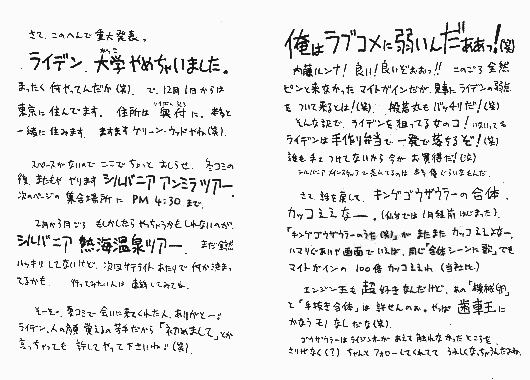 俺は ラブコメに弱いんだああっ!(笑)
内藤ルンナ! 良い! 良いぞおおっ!! このごろ 全然
ピンと来なかった マイトガインだが、見事に ライデンの弱点
を ついて来るとは!(笑)
そんな訳で、ライデンを狙ってる女のコ!
ライデンは 手作り弁当で 一発で落ちるぞ!(笑)
誰も まだ つけてないから 今が お買得だ!(笑)
さて、話を戻して、キングゴウザウラーの合体、
カッコええなー。
「キングゴウザウラーのうた(笑)」が またまた カッコええなー。
マイトガインの 100倍 カッコええわ (当社比)
エンジン王も 超 好きなんだけど、あの「機械(笑)」
と「手抜き合体」は 許せんのぉ。やっぱ 歯車王に
かなう モノ なしだな(笑)。
さりげなく(?) ちゃんと フォローしてくれてて うれしくなっちゃうんだよね。
さて、このへんで 重大発表。
ライデン、大学 やめちゃいました。
まったく 何やってんだか(笑)。で、12月1日からは
東京に 住んでます。 住所は 奥付 に。
一緒に 住みます。 ますます グリーン・ウッドやね(笑)。
スペースがないので ここで ちょっと お知らせ。 冬コミの
後、またもや やります シルバニア アンミラ ツアー。
次のページの 集合場所に PM 4:30 まで。
2月か3月ごろ もしかしたら やっちゃうかもしれないのが、
シルバニア 熱海温泉ツアー。 まだ 全然
ハッキリ してないけど、次回 サテライト あたりで 何か 決まっ
てるかも。 行ってみたい人は 連絡してみてね。
そーそー、夏コミで 会いに来てくれた人、ありがとーっ
ライデン、人の顔 覚えるの 苦手だから 「初めまして」とか
言っちゃっても 許してやって 下さいね♪(笑)。